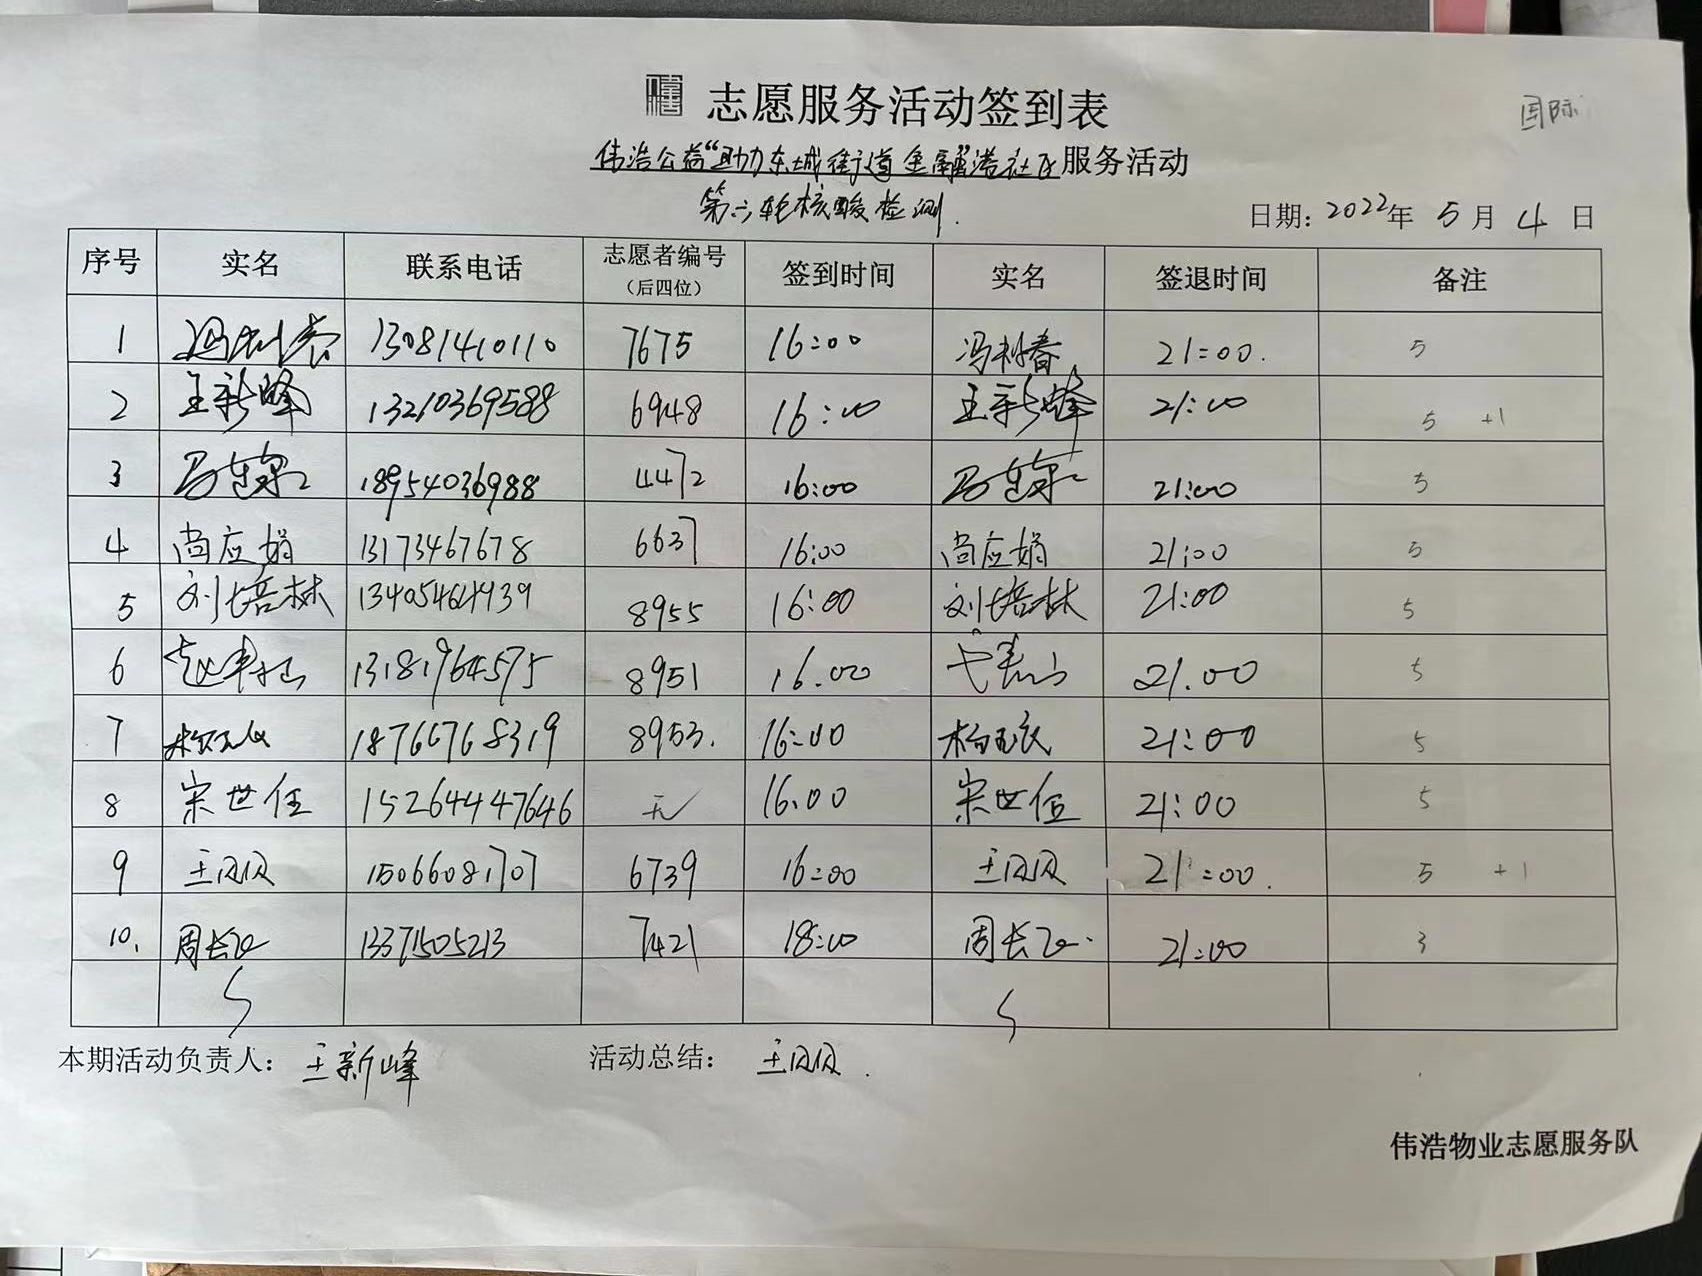 志愿服务活动签到表
国际
伟浩公益“助力东城街道金融港社区服务活动
第六轮核酸检测.
日期: 2022年 5月 4日
序号 实名 联系电话 志愿者编号（后四位） 签到时间 实名 签退时间 备注
1 冯利春 13081410110 7675 16:00 冯利春 21:00. 5
2 王新峰 13210369588 6948 16:00 王新峰 21:00 5 +1
3 18954036988 4472 16:00 21:00 5
4 尚应娟 13173467678 6637 16:00 尚应娟 21:00 5
5 刘培林 13405464939 8955 16:00 刘培林 21:00 5
6 13181964575 8951 16.00 21.00 5
7 18766768319 8953. 16:00 21:00 5
8 宋世任 15264447646 无 16:00 宋世任 21:00 5
9 王贝贝 15066081707 6739 16:00 王贝贝 21:00. 5 +1
10. 周长 13371505213 7421 18:00 周长 21:00 3
本期活动负责人: 王新峰 活动总结: 王贝贝.
伟浩物业志愿服务队